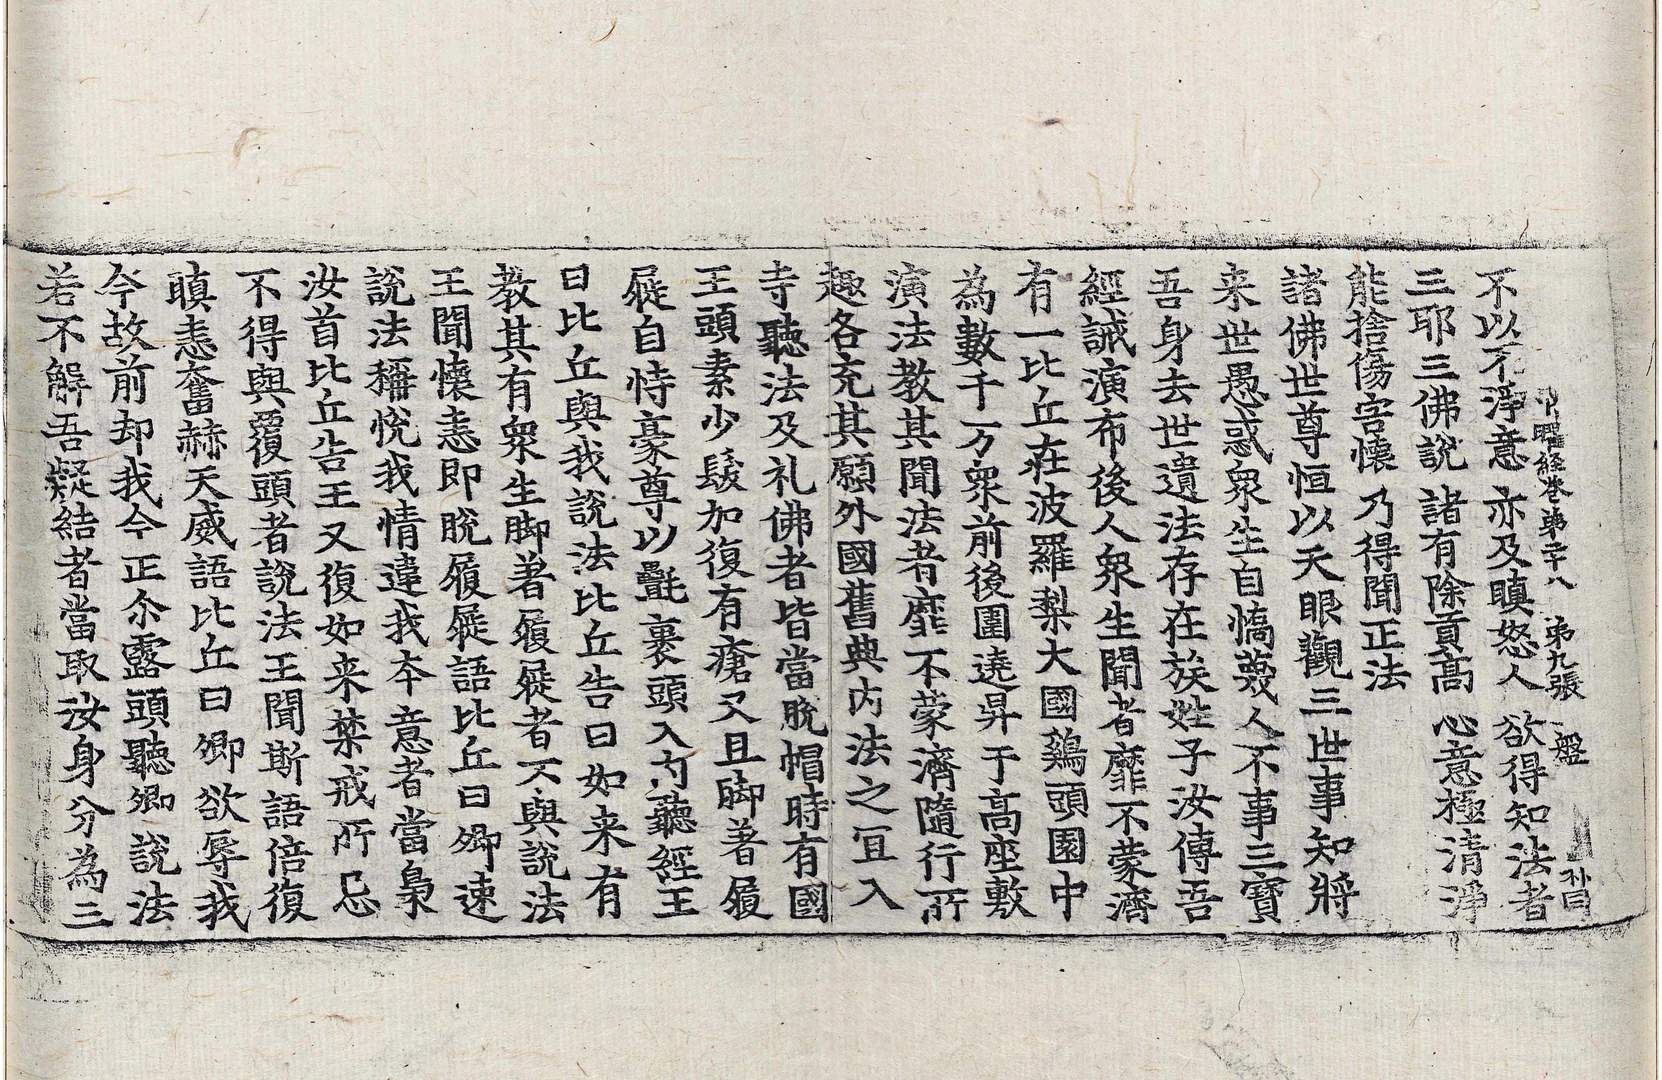 曜経卷第二十八 第九張 盤
不以不淨意 亦及瞋怒人 欲得知法者
三耶三佛說 諸有除貢高 心意極清淨
能捨傷害懷 乃得聞正法
諸佛世尊恒以天眼觀三世事知將
来世愚惑衆生自憍蔑人不事三寶
吾身去世遺法存在族姓子汝傳吾
經誡演布後人衆生聞者靡不蒙濟
有一比丘在波羅梨大國鷄頭園中
為數千万衆前後圍遶昇于高座敷
演法教其聞法者靡不蒙濟隨行所
趣各充其願外國舊典内法之冝入
寺聽法及礼佛者皆當脫帽時有國
王頭素少髮加復有瘡又且脚著履
屣自恃豪尊以㲲裹頭入内聽經王
曰比丘與我說法比丘告曰如来有
教其有衆生脚著履屣者不與說法
王聞懷恚即脫履屣語比丘曰卿速
說法稱悅我情違我本意者當梟
汝首比丘告王又復如来禁戒所忌
不得與覆頭者說法王聞斯語倍復
瞋恚奮赫天威語比丘曰卿欲辱我
今故前却我今正尒露頭聽卿說法
若不解吾疑結者當取汝身分為三